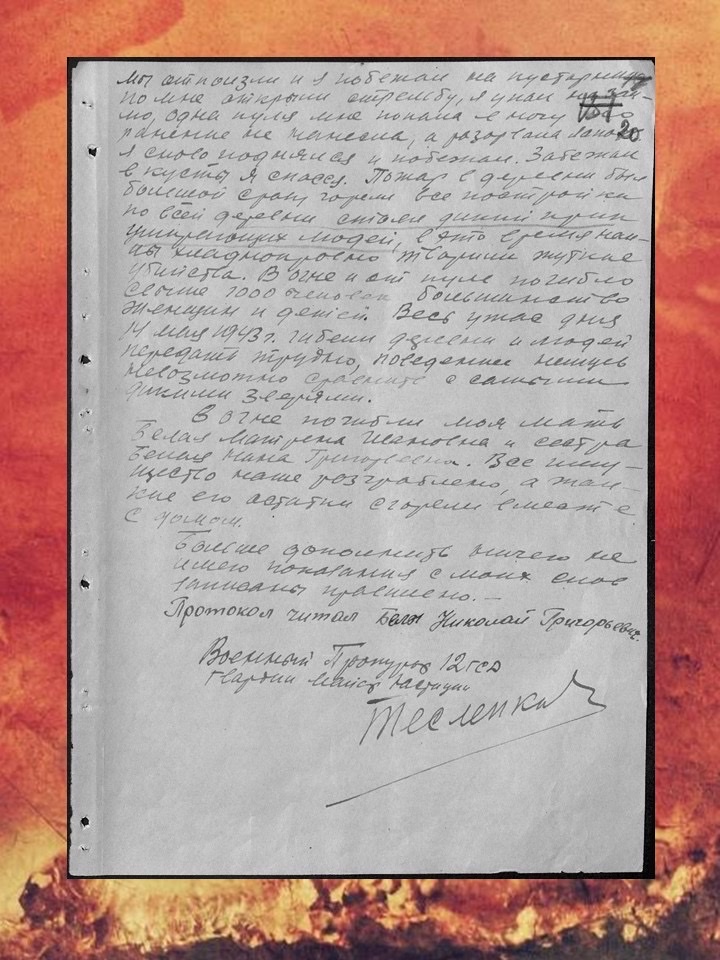 мы отползли и я побежал на пустырь
по мне открыли стрельбу, я упал на зем-
лю, одна пуля мне попала в ногу
20
ранение не нанесла, а разорвала сапог.
Я снова поднялся и побежал. Забежал
в кусты я спасся. Пожар в деревни был
большой сразу горели все постройки
по всей деревни стоял дикий крик
умирающих людей, в это время
хладнокровно творили жуткие
убийства. В огне и от пуль погибло
свыше 1000 человек большинство
женщин и детей. Весь ужас дня
14 мая 1943 г. гибели деревни и людей
передать трудно, поведение немцев
невозможно сравнить с самыми
дикими зверями.
В огне погибли моя мать
Белая Матрена Ивановна и сестра
Белая Нина Григорьевна. Все иму-
щество наше разграблено, а жал-
кие его остатки сгорели вместе
с домом.
Больше дополнить ничего не
имею показания с моих слов
записаны правильно. —
Протокол читал Белы Николай Григорьевич.
Военный Прокурор 12 гсд
Гвардии Майор Юстиции